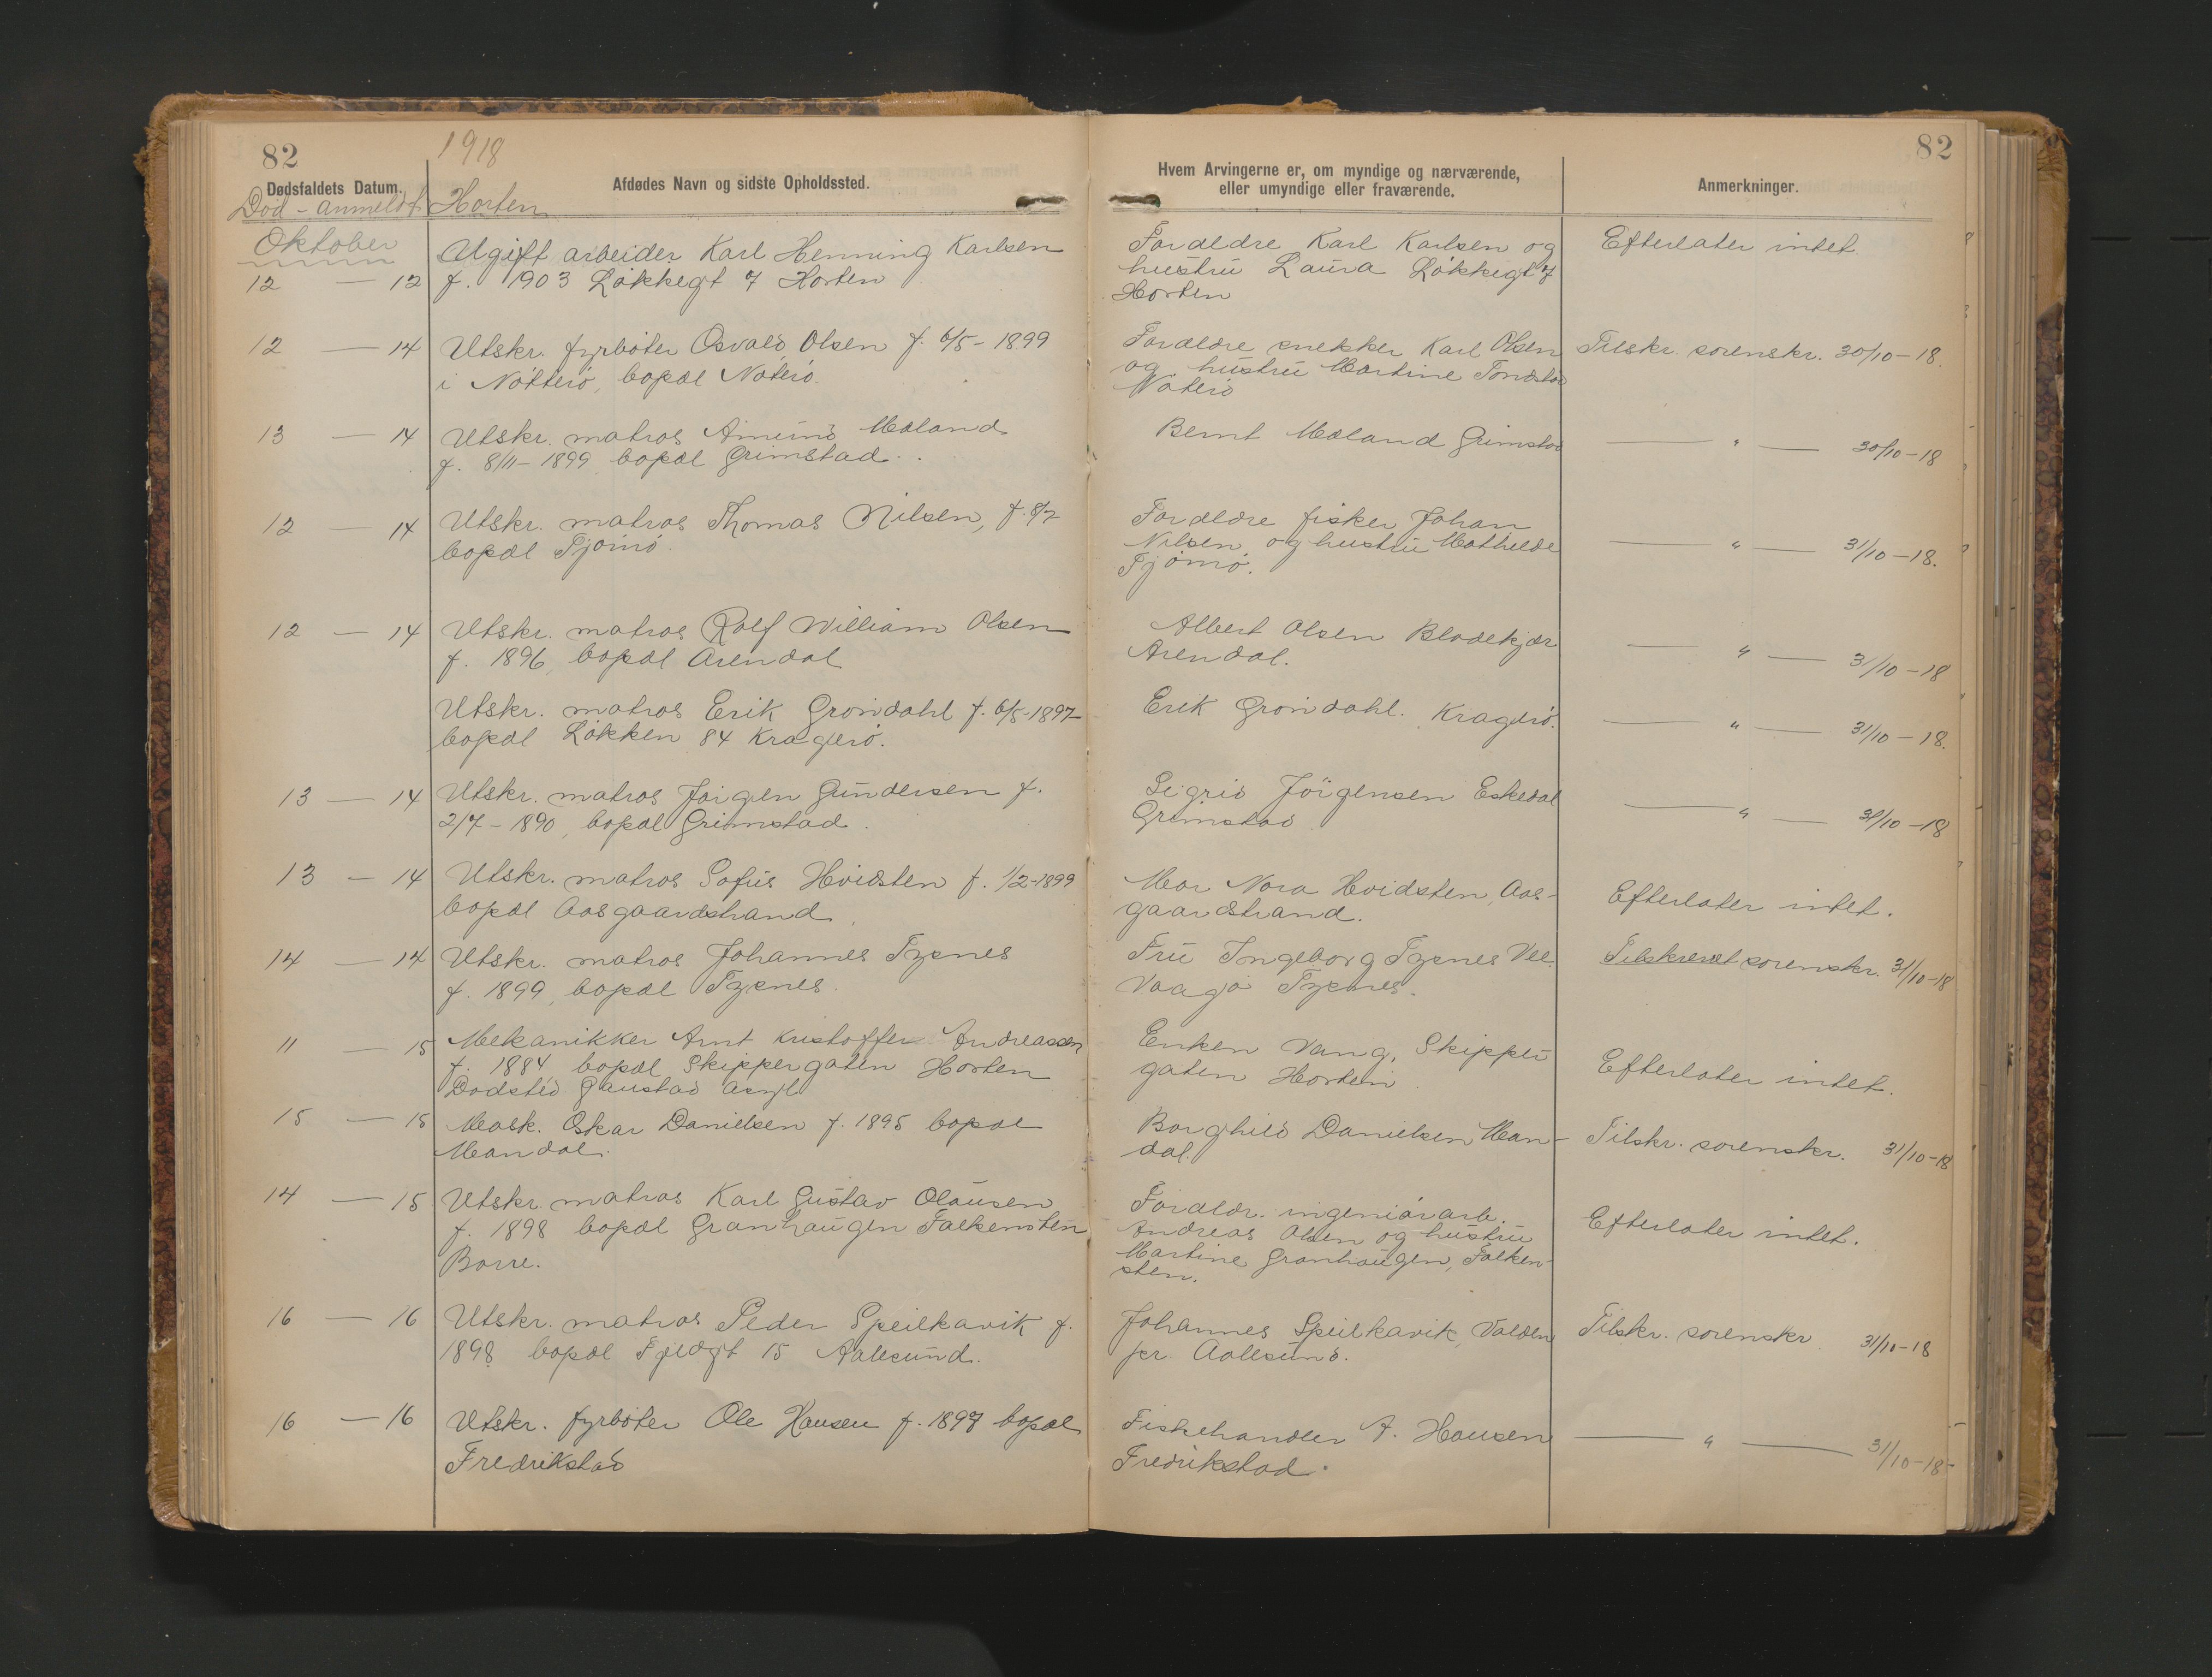 82
1918
Dødsfaldets Datum.
Afdødes Navn og sidste Opholdssted.
Død - anmeldt
Horten
Hvem Arvingerne er, om myndige og nærværende,
eller umyndige eller fraværende.
Anmerkninger.
82
Oktober
Ugift arbeider Karl Henning Karlsen
12 — 12 f. 1903 Løkkegt 7 Horten
Foraldre Karl Karlsen og
hustru Laura Løkkegt 7
Horten
Efterlater intet
12 — 14 Utskr. fyrbøter Osvald Olsen f. 6/5-1899
i Nøtterø, bopæl Nøterø.
Foraldre snekker Karl Olsen
og hustru Martine
Nøterø
Tilskr. sorenskr. 30/10-18.
13 — 14 Utskr. matros Amund Mæland
f. 8/11-1899 bopæl Grimstad.
Bernt Mæland Grimstad
— " — 30/10-18
12 — 14 Utskr. matros Thomas Nilsen, f. 8/7
bopæl Tjømø.
Foræeldre fisker Johan
Nilsen og hustru Mathilde
Tjømø.
— " — 31/10-18.
12 — 14 Utskr. matros Rolf William Olsen
f. 1896, bopæl Arendal
Albert Olsen Blødekjær
Arendal.
— " — 31/10-18
Utskr. matros Erik Grøndahl f. 6/5-1897
bopæl Løkken 84 Kragerø.
Erik Grøndahl. Kragerø.
— " — 31/10-18.
13 — 14 Utskr. matros Jørgen Gundersen f.
2/7-1890, bopæl Grimstad.
Sigrid Jörgensen Eskedal
Grimstad
— " — 31/10-18
13 — 14 Utskr. matros Sofus Hvidsten f. 1/2-1899
bopæl Aasgaardstrand.
Mor Nora Hvidsten, Aas-
gaardstrand.
Efterlater intet.
14 — 14 Utskr. matros Johannes Tzenes
f. 1899, bopæl Tzenes.
Fru Ingeborg Tzenes Vee.
Vaagø Tzenes.
Tilskrevet sorenskr. 31/10-18
11 — 15 Mekanikker Arnt Kristoffer Andreassen
f. 1884 bopæl Skippergaten Horten
Dødsted Gaustad asyl
Enken Vang, Skipper
gaten Horten.
Efterlater intet.
15 — 15 Mask. Oskar Danielsen f. 1895 bopæl
Mandal.
Borghild Danielsen Man-
dal.
Tilskr. sorenskr. 31/10-18
14 — 15 Utskr. matros Karl Gustav Olausen
f. 1898 bopæl Granhaugen Falkensten
Borre.
Foraldr. ingeniørarb.
Andreas Olsen og hustru
Martine Granhaugen, Falken-
sten.
Efterlater intet.
16 — 16 Utskr. matros Peder Speilkavik f.
1898 bopæl Fjeldgt 15 Aalesund.
Johannes Speilkavik, Valden
pr. Aalesund.
Tilskr. sorenskr 31/10-18
16 — 16 Utskr. fyrbøter Ole Hansen f. 1897 bopæl
Fredrikstad
Fiskehandler A. Hansen
Fredrikstad.
— " — 31/10-18-